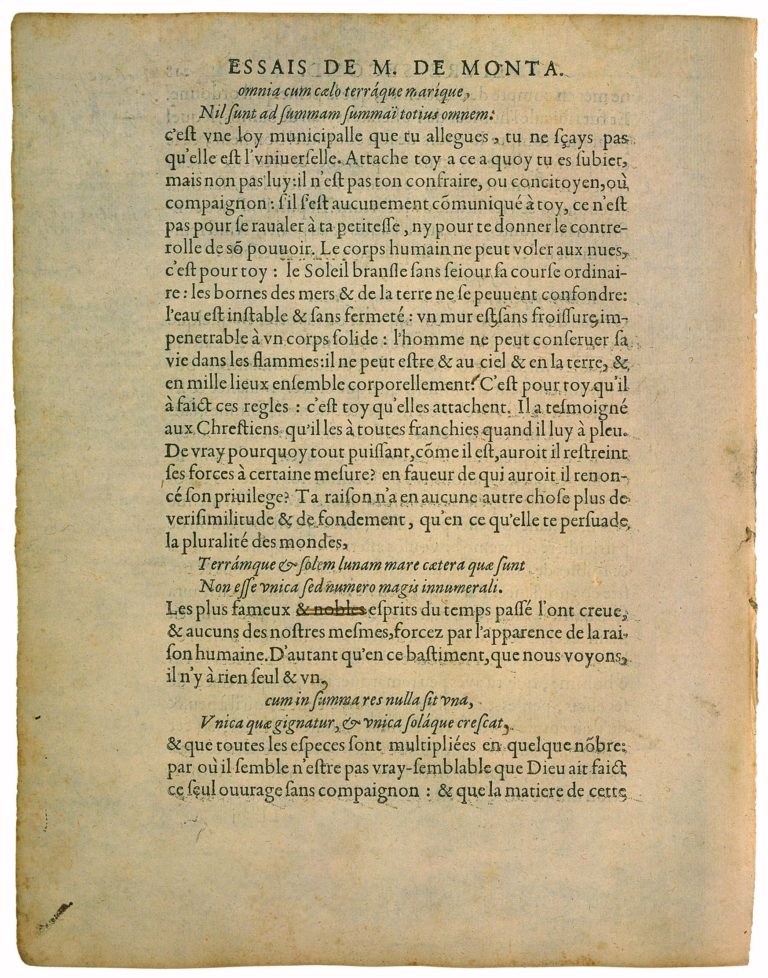 ESSAIS DE M. DE MONTA.
omnia cum cælo terráque marique,
Nil ſunt ad ſummam ſummaï totius omnem:
c'eſt vne loy municipalle que tu allegues, tu ne ſçays pas
qu'elle eſt l'vniuerſelle. Attache toy a ce a quoy tu es ſubiet,
mais non pas luy: il n'eſt pas ton confraire, ou concitoyen, ou
compaignon : s'il s'eſt aucunement cõmuniqué à toy, ce n'eſt
pas pour ſe raualer à ta petiteſſe, ny pour te donner le contre-
rolle de sõ pouuoir. Le corps humain ne peut voler aux nues,
c'eſt pour toy : le Soleil branſle ſans ſeiour ſa courſe ordinai-
re : les bornes des mers & de la terre ne ſe peuuent confondre:
l'eau eſt inſtable & ſans fermeté : vn mur eſt, ſans froiſſure, im-
penetrable à vn corps ſolide : l'homme ne peut conſeruer ſa
vie dans les flammes: il ne peut eſtre & au ciel & en la terre, &
en mille lieux enſemble corporellement. C'eſt pour toy qu'il
à faict ces regles : c'eſt toy qu'elles attachent. Il a teſmoigné
aux Chreſtiens qu'il les à toutes franchies quand il luy à pleu.
De vray pourquoy tout puiſſant, cõme il eſt, auroit il reſtreint
ſes forces à certaine meſure? en faueur de qui auroit il renon-
cé ſon priuilege? Ta raiſon n'a en aucune autre choſe plus de
veriſimilitude & de fondement, qu'en ce qu'elle te perſuade
la pluralité des mondes,
Terrámque & ſolem lunam mare cætera quæ ſunt
Non eſſe vnica ſed numero magis innumerali.
Les plus fameux & nobles eſprits du temps paſſé l'ont creue,
& aucuns des noſtres meſmes, forcez par l'apparence de la rai-
ſon humaine. D'autant qu'en ce baſtiment, que nous voyons,
il n'y à rien ſeul & vn,
cum in ſumma res nulla ſit vna,
Vnica quæ gignatur, & vnica ſoláque creſcat,
& que toutes les eſpeces ſont multipliées en quelque nõbre:
par où il ſemble n'eſtre pas vray-ſemblable que Dieu ait faict
ce ſeul ouurage ſans compaignon : & que la matiere de cette